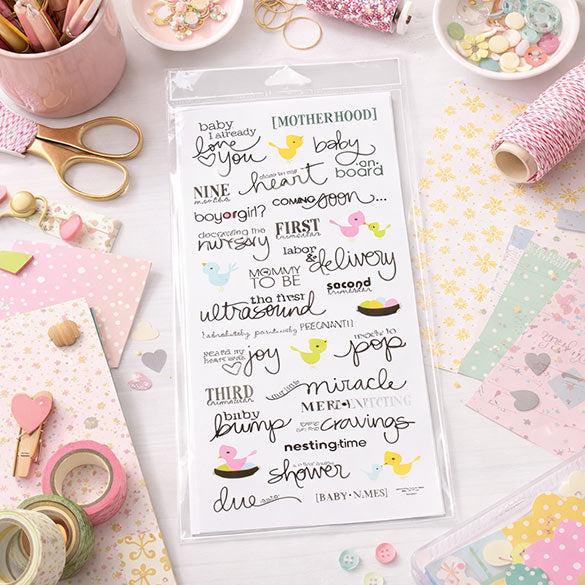 baby
I already
love
you
[MOTHERHOOD]
baby
on
board
NINE
months
heart
COMING soon...
boyorgirl?
FIRST
trimester
decorating the
nursery
labor
& delivery
MOMMY
TO BE
second
trimester
the first
ultrasound
[absolutely positively PREGNANT!]
ready to
pop
joy
THIRD
trimester
little
miracle
baby
bump
cravings
nesting:time
shower
due
[BABY • N.MES]